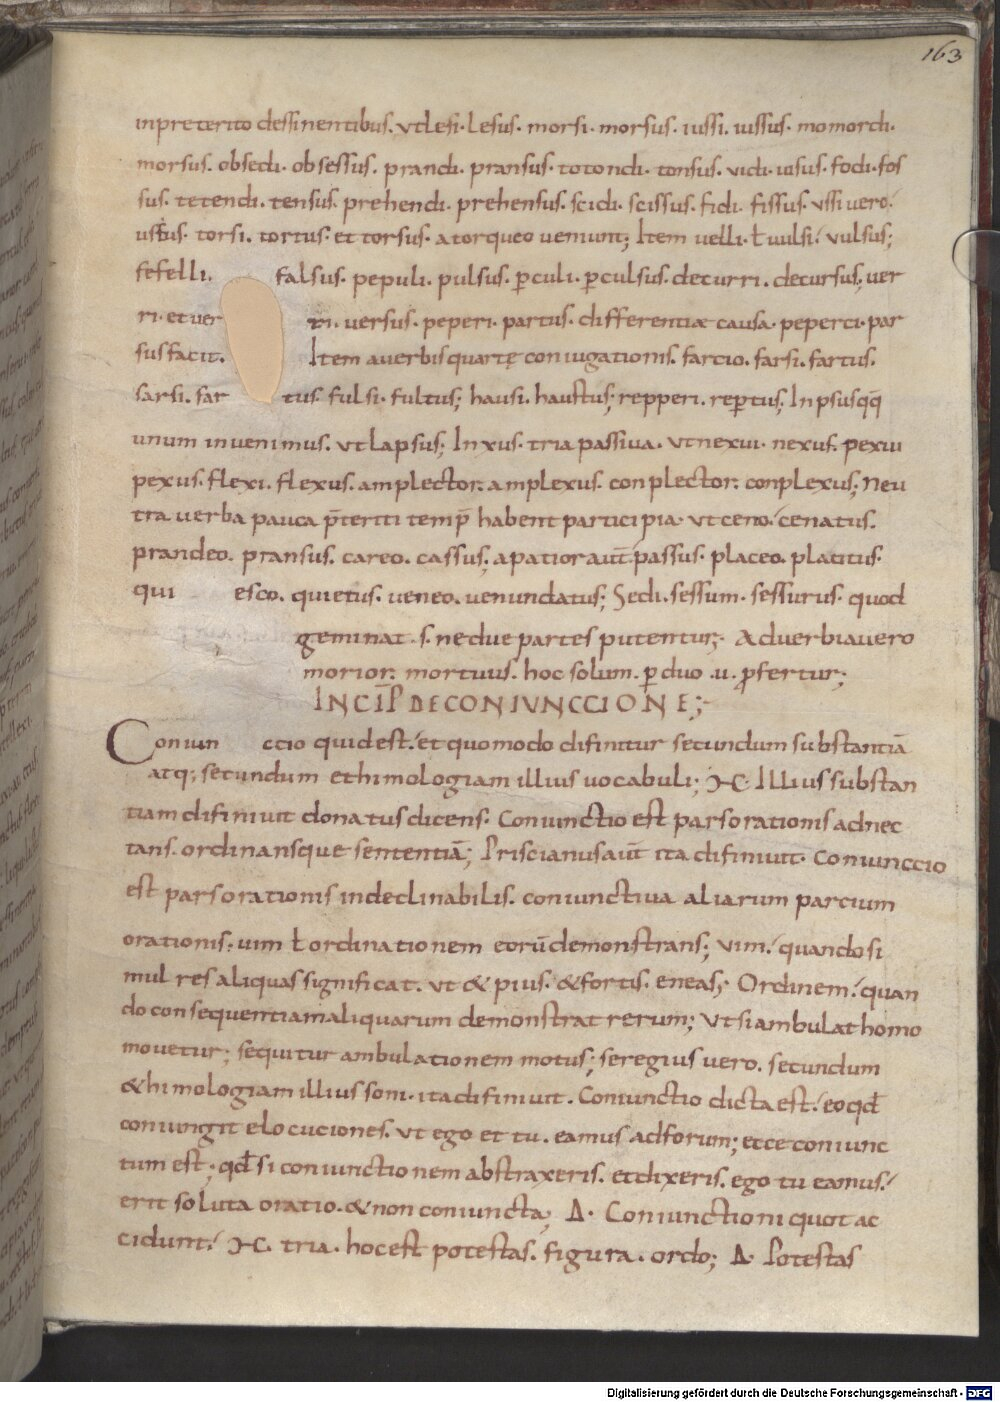 163
inpreterito dessinentibus. utlesi. lesus. morsi. morsus. iussi. iussus. momordi.
morsus. obsedi. obsessus. prandi. pransus. totondi. tonsus. vidi. uisus. fodi. fos
sus. tetendi. tensus. prehendi. prehensus. scidi. scissus. fidi. fissus. ussi uero.
ustus. torsi. tortus. et torsus. atorqueo ueniunt; Item uelli. ł vulsi. vulsus;
fefelli. falsus. pepuli. pulsus. ꝑculi. ꝑculsus. decurri. decursus; ver
ri. et uer ri. versus. peperi. partus. differentiae causa. peperci. par
sus facit. Item auerbis quartę coniugationis. farcio. farsi. fartus.
sarsi. sar tus. fulsi. fultus; hausi. haustus; repperi. reꝑtus; Inpsusqq̄
unum inuenimus. utlapsus; Inxus. tria passiua. utnexui. nexus. pexui
pexus. flexi. flexus. amplector. amplexus. conplector. conplexus; Neu
tra uerba pauca p̄teriti temp̄ habent participia. utceno. cenatus.
prandeo. pransus. careo. cassus; apatior aut̄ passus. placeo. placitus.
qui esco. quietus. ueneo. uenundatus; Sedi. sessum. sessurus. quod
geminat .s. nedue partes putentur;. Aduerbiauero
morior. mortuus. hoc solum. ꝑ duo .u. ꝓfertur;
INCIP̄ DE CONIUNCCIONE;
Coniun ccio quid est. et quomodo difinitur secundum substantiā
atq; secundum ethimologiam illius uocabuli; M. Illius substan
tiam difiniuit donatus dicens. Coniunctio est pars orationis adnec
tans. ordinansque sententiā; Priscianus aut̄ ita difiniuit. Coniunccio
est pars orationis indeclinabilis. coniunctiua aliarum parcium
orationis. uim ł ordinationem eorū demonstrans; Vim. quando si
mul res aliquas significat. ut & pius. & fortis. eneas; Ordinem. quan
do consequentiam aliquarum demonstrat rerum; Vt si ambulat homo
mouetur; sequitur ambulationem motus; seregius vero. secundum
&himologiam illius soni. ita difiniuit. Coniunctio dicta est. eo qđ
coniungit elocuciones. ut ego et tu. eamus ad forum; etce coniunc
tum est; qđ si coniunctionem abstraxeris. et dixeris. ego tu eamus.
erit soluta oratio. & non coniuncta; Δ. Coniunctioni quot ac
cidunt. M. tria. hoc est potestas. figura. ordo; Δ. Potestas
Digitalisierung gefördert durch die Deutsche Forschungsgemeinschaft - DFG